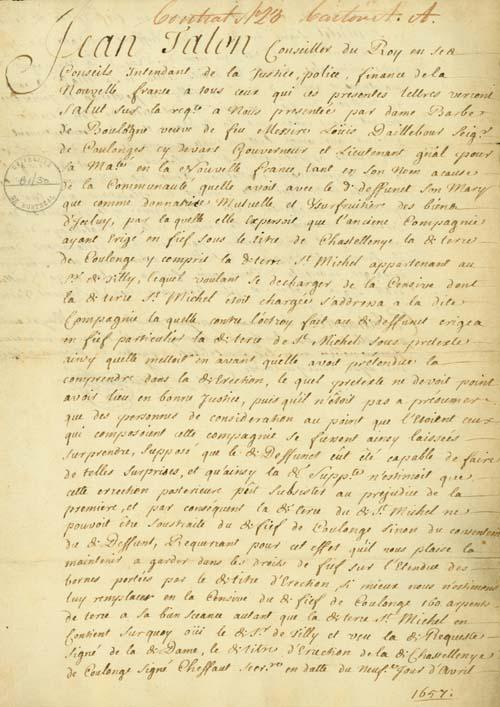 Contrat N 23 Carton A. A
Jean Talon Conseiller du Roy en ses
Conseils Intendant de la Justice, police, finance de la
Nouvelle france a tous ceux qui ces presentes lettres verront
Salut sur la reqte a Nous presentée par dame Barbe
de Boulogne veuve de feu Messire Louis Daillebout Seigr
de Coulonges cy devant Gouverneur et Lieutenant gnâl pour
sa Maté en la Nouvelle France, tant en son Nom a cause
de la Communauté quelle avoit avec le d. deffunct Son Mary
que comme donnatrice Mutuelle et Usufruitiere des biens
d'Iceluy, par la quelle elle Exposoit que l'anciene Compagnie
ayant Erigé en fief sous le titre de Chastellenye la de terre
de Coulonge y compris la de terre St Michel appartenant au
Sr de Tilly, lequel voulant se decharger de la Censive dont
la de terre St Michel etoit chargée s'addressa a la dite
Compagnie la quelle contre l'octroy fait au dt deffunct erigea
en fief particulier la de terre de St Michel sous pretexte
ainsy quelle mettoit en avant qu'elle avoit pretendue la
comprendre dans la de Erection, le quel pretexte ne devoit point
avoir lieu en bonne Justice, puis qu'il n'etoit pas a presumer
que des personnes de consideration au point que l'Etoient ceux
qui composoient cette compagnie se fussent ainsy laissées
surprendre, suppose que le dt Deffunct eut été capable de faire
de telles surprises, et qu'ainsy la de Suppte n'estimoit que
cette erection posterieure pût Subsister au prejudice de la
premiere, et par consequent la de terre du dt St Michel ne
pouvoit être soustraite du dt fief de Coulonge sinon du consentemt
du dt Deffunt, Requerant pour cet effet qu'il nous plaise la
maintenir a garder dans les droits de fief sur l'Etendue des
bornes portées par le dt titre d'Erection si mieux nous n'estimons
luy remplacer en la Censive du dt fief de Coulonge 160 arpents
de terre a sa bien seance autant que la de terre St Michel en
Contient Surquoy oüi le dt Sr de Tilly et veu la de Requeste
Signé de la de Dame, le dt titre d'Erection de la de Chastellenye
de Coulonge Signé Cheffaut Secre en datte du Neufe Jour d'Avril
1657.